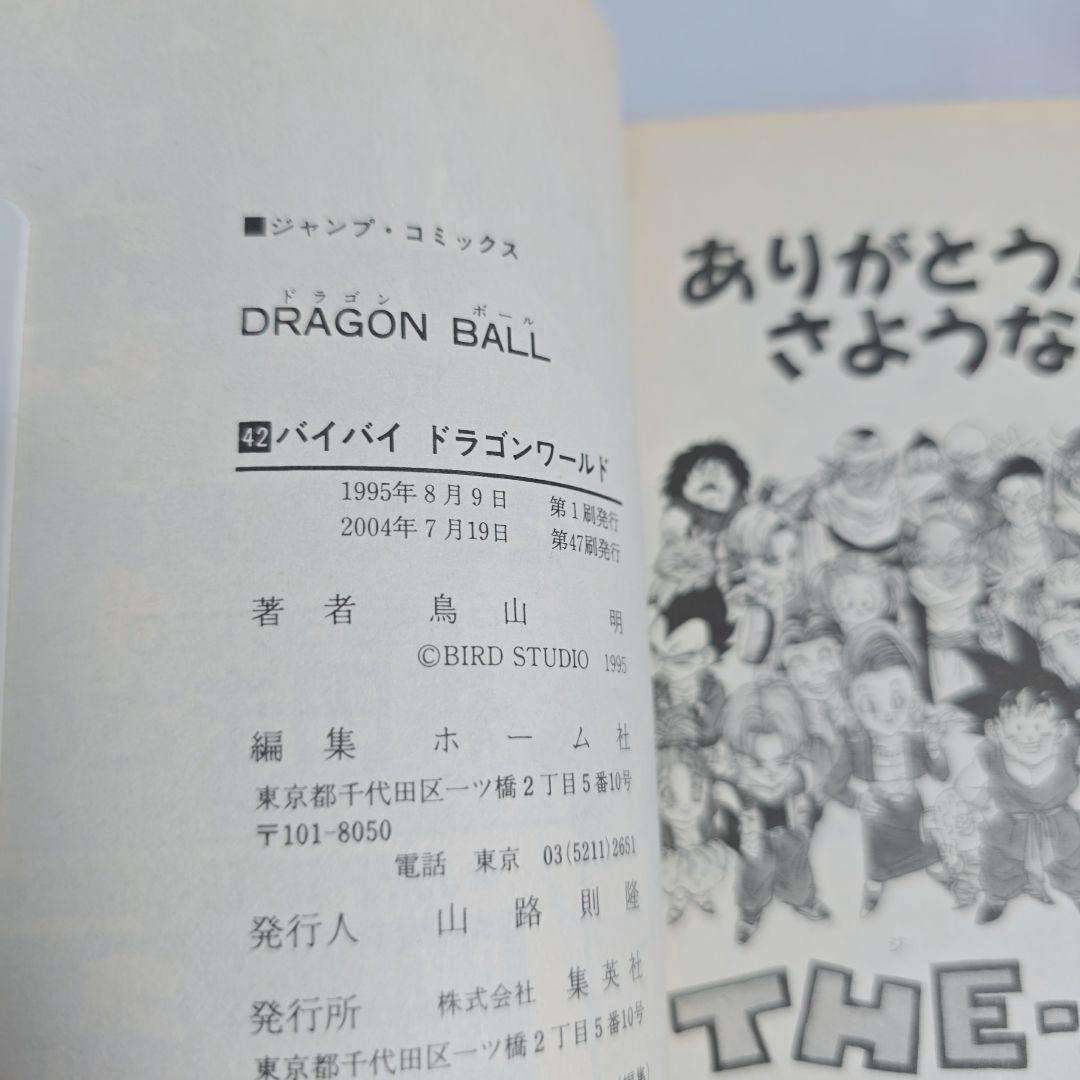 ■ジャンプ・コミックス
ドラゴン ボール
DRAGON BALL
42 バイバイ ドラゴンワールド
1995年8月9日 第1刷発行
2004年7月19日 第47刷発行
著者 鳥山 明
©BIRD STUDIO 1995
編集 ホーム社
東京都千代田区一ツ橋2丁目5番10号
〒101-8050
電話 東京 03(5211)2651
発行人 山路則隆
発行所 株式会社 集英社
東京都千代田区一ツ橋2丁目5番10号
ありがとう
さような
THE-